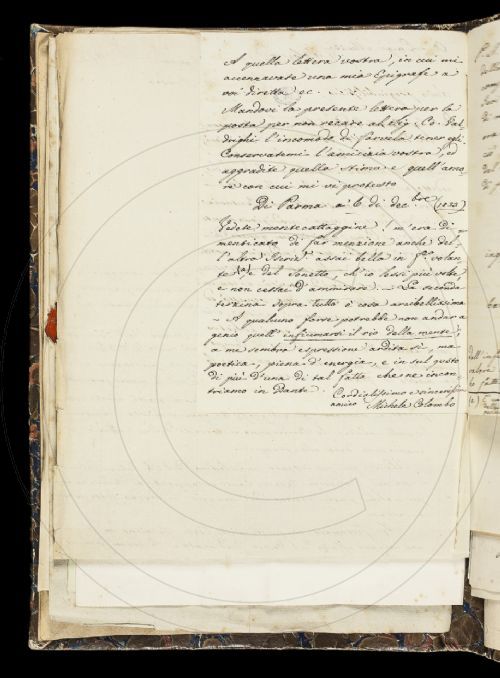 A quella lettera vostra, in cui mi
accennavate una mia Epigrafe a
voi diretta ec.
Mandovi la presente lettera per la
posta per non recare al Sig. Co. Val-
drighi l'incomodo di farvela tener egli.
Conservatemi l'amicizia vostra, ed
aggradite quella stima e quell'amo
re con cui mi vi protesto
Di Parma a' 6 di dec.bre (1833)
Vedete montecattaggine! m'era di-
menticato di far menzione anche del-
l'altra Iscriz.e assai bella in f.o volan
te e del Sonetto, ch'io lessi più volte,
e non cessai d'ammirare. - La seconda
terzina sopra tutto è cosa arcibellissima
- A qualcuno forse potrebbe non andar a
genio quell' infiumarsi il rio della mente;
a me sembra espressione ardita sì, ma
poetica, piena d'energia, e in sul gusto
di più d'una di tal fatta che ne incon-
triamo in Dante.
Cordialissimo e sincerissimo
amico Michele Colombo